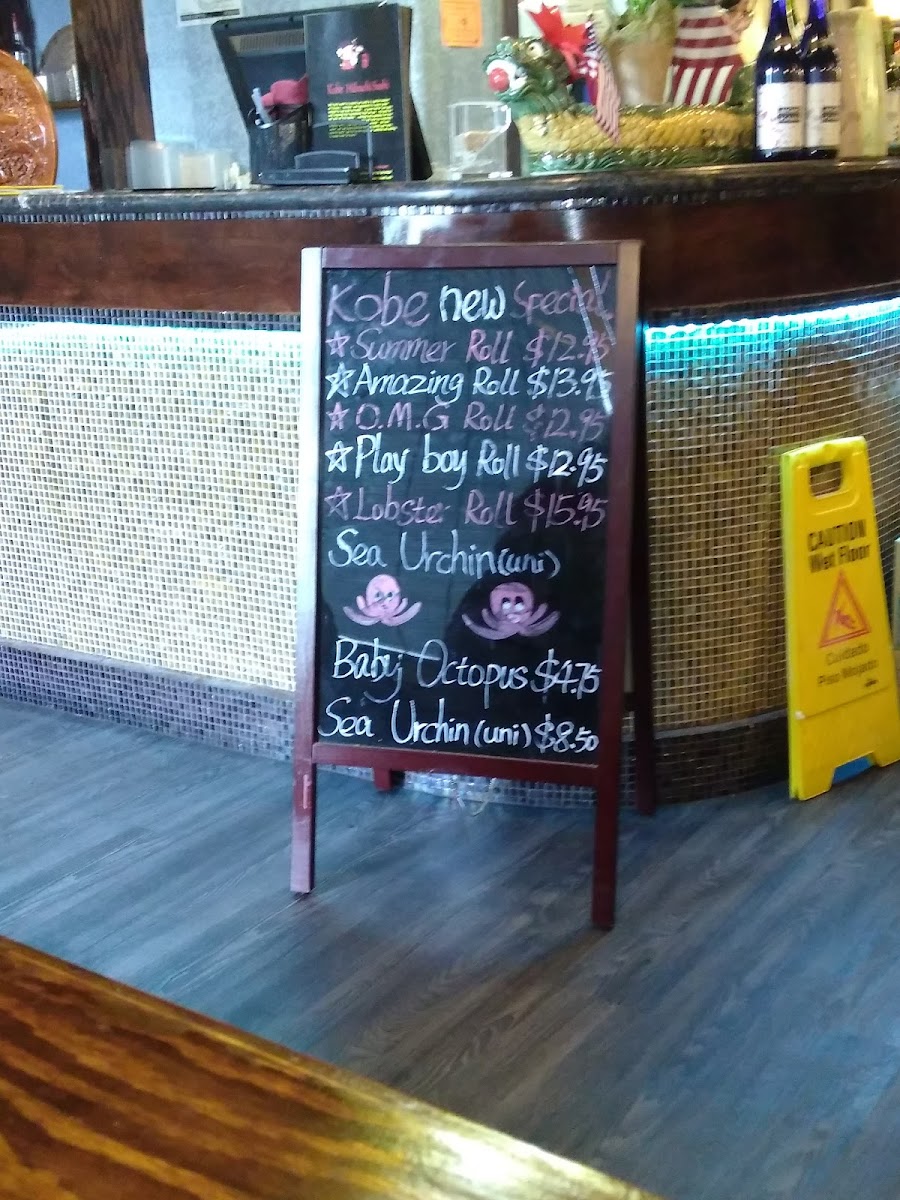 Kobe Hibachi Sushi
Kobe new Special
Summer Roll $12.95
Amazing Roll $13.95
O.M.G Roll $12.95
Play boy Roll $12.95
Lobster Roll $15.95
Sea Urchin (uni)
Baby Octopus $4.75
Sea Urchin (uni) $8.50
CAUTION
Wet Floor
Cuidado
Piso Mojado